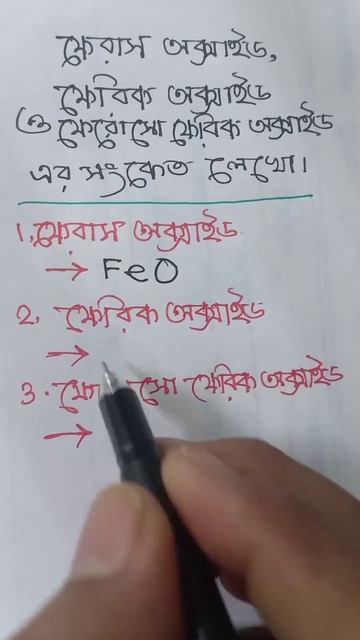 ফেরাস অক্সাইড,
ফেরিক অক্সাইড
ও ফেরোসো ফেরিক অক্সাইড
এর সংকেত লেখো।
1. ফেরাস অক্সাইড
→ FeO
2. ফেরিক অক্সাইড
→
3. ফে সো ফেরিক অক্সাইড
→